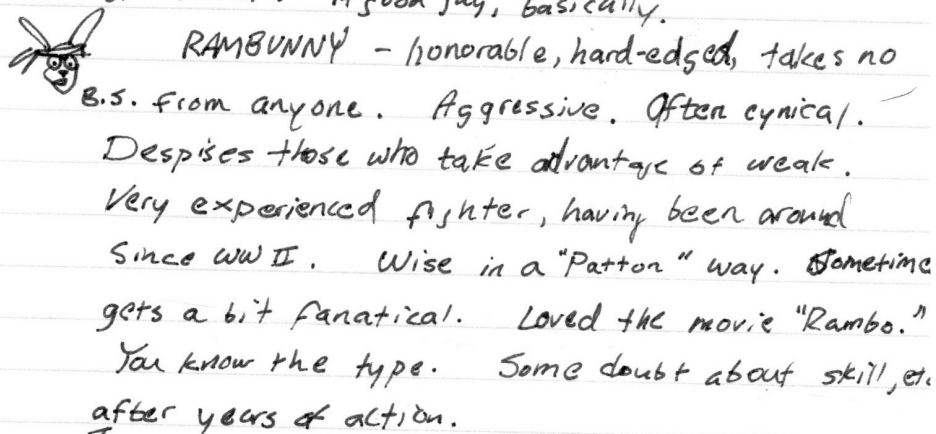 A good guy, basically.
RAMBUNNY - honorable, hard-edged, takes no
B.S. from anyone. Aggressive. Often cynical.
Despises those who take advantage of weak.
Very experienced fighter, having been around
since WW II. Wise in a "Patton" way. Sometime
gets a bit fanatical. Loved the movie "Rambo."
You know the type. Some doubt about skill, etc
after years of action.